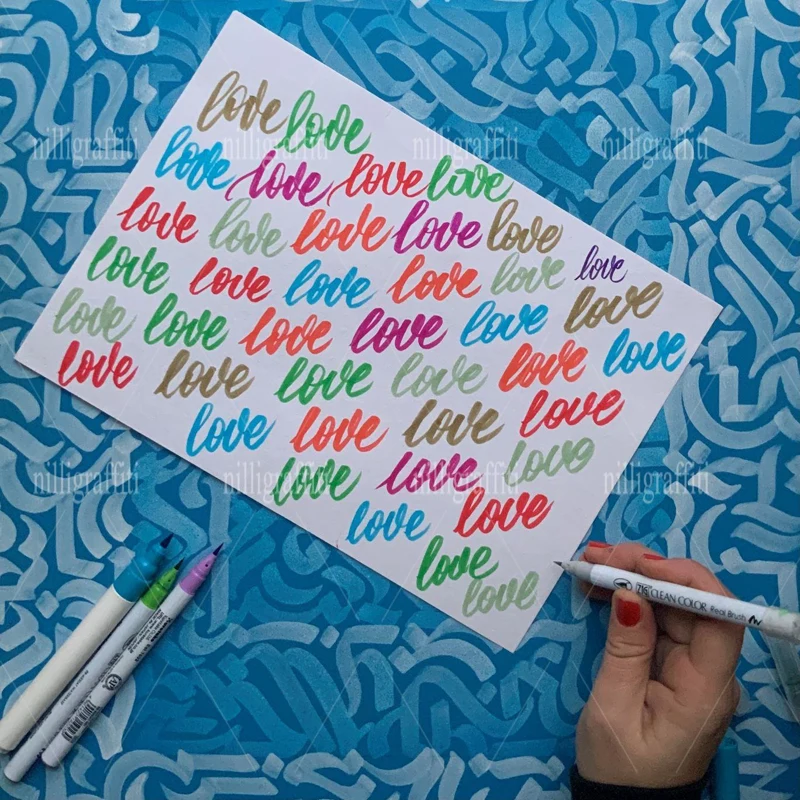 love love
nilligraffiti nilligraffiti nilligraffiti nilligraffiti
love love love love
love love love love love
love love love love love love
love love love love love love
love love love love love love
love love love love
love love love
nilligraffiti nilligraffiti nilligraffiti nilligraffiti
love love
love
love
ZIG CLEAN COLOR Real Brush